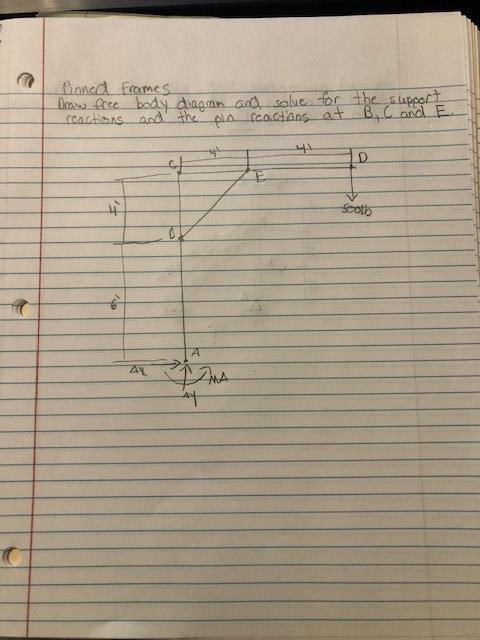 Pinned Frames
Draw free body diagram and solve for the support
reactions and the pin reactions at B, C and E.
4'
4'
C
D
E
4'
500lb
B
6'
A
Ax
MA
Ay